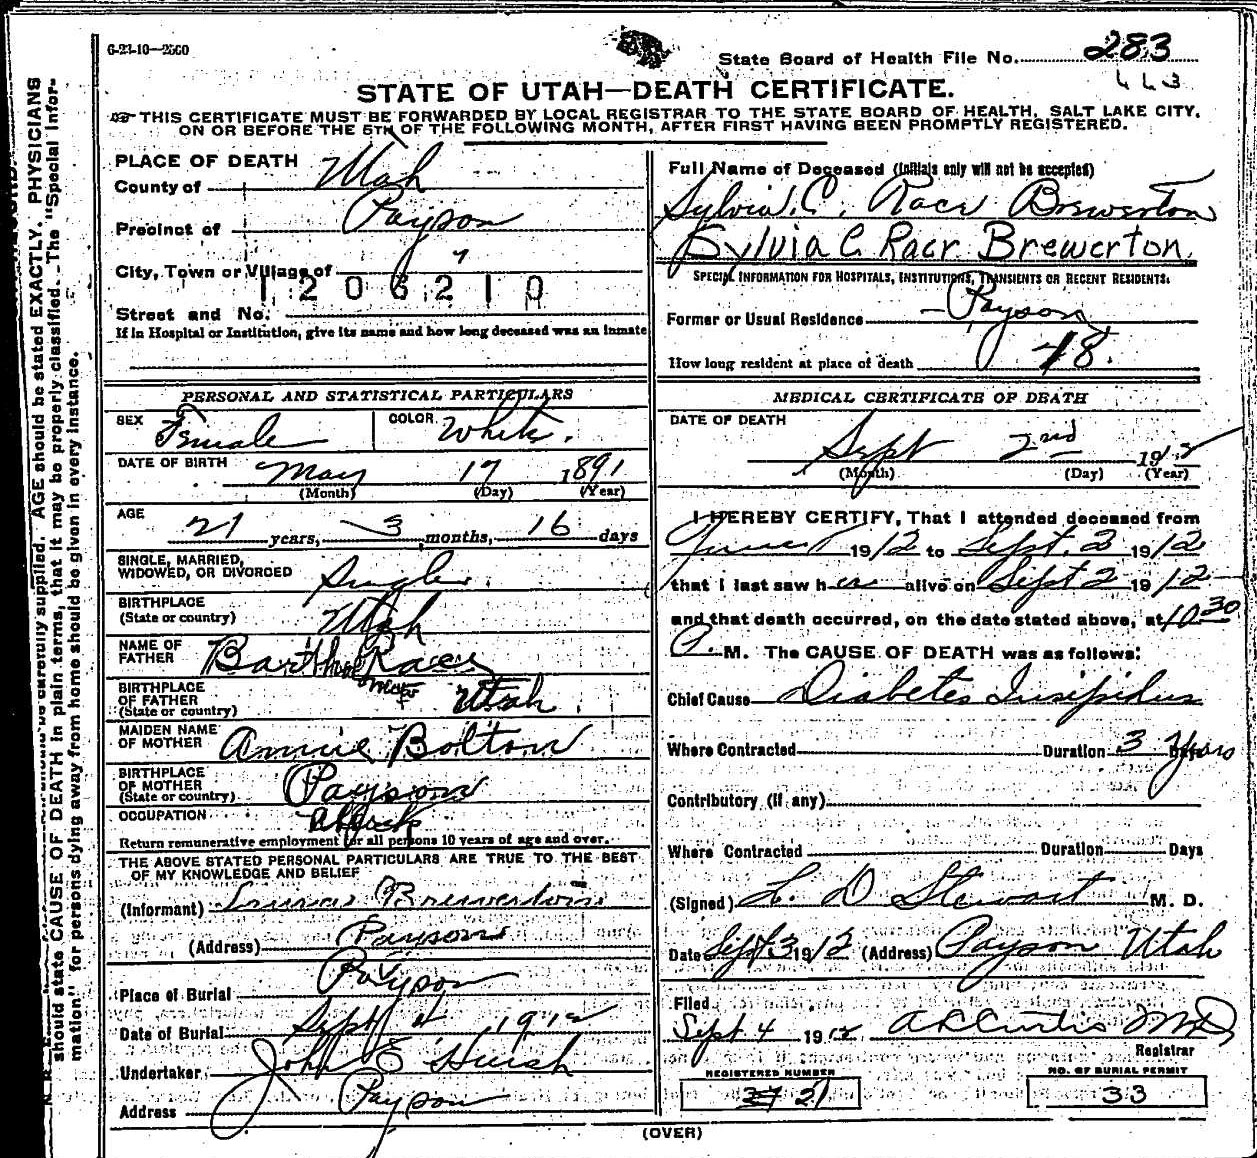 6-23-10—2560
State Board of Health File No. 283
443
STATE OF UTAH—DEATH CERTIFICATE.
☞THIS CERTIFICATE MUST BE FORWARDED BY LOCAL REGISTRAR TO THE STATE BOARD OF HEALTH, SALT LAKE CITY,
ON OR BEFORE THE 5TH OF THE FOLLOWING MONTH, AFTER FIRST HAVING BEEN PROMPTLY REGISTERED.
PLACE OF DEATH
County of Utah
Precinct of Payson
City, Town or Village of "
1206210
Street and No.
If in Hospital or Institution, give its name and how long deceased was an inmate
PERSONAL AND STATISTICAL PARTICULARS
SEX Female COLOR White.
DATE OF BIRTH May 17 1891
(Month) (Day) (Year)
AGE
21 years, 3 months, 16 days
SINGLE, MARRIED,
WIDOWED, OR DIVORCED Single.
BIRTHPLACE
(State or country) Utah
NAME OF
FATHER Barthol Racr
BIRTHPLACE
OF FATHER
(State or country) Utah.
MAIDEN NAME
OF MOTHER Annie Bolton
BIRTHPLACE
OF MOTHER
(State or country) Payson
OCCUPATION
Return remunerative employment for all persons 10 years of age and over.
THE ABOVE STATED PERSONAL PARTICULARS ARE TRUE TO THE BEST
OF MY KNOWLEDGE AND BELIEF
(Informant) Brewerton
(Address) Payson
Place of Burial Payson
Date of Burial Sept 4 1912
Undertaker John E Huish
Address Payson
Full Name of Deceased (Initials only will not be accepted)
Sylvia. C. Racr Brewerton
Sylvia C. Racr Brewerton.
SPECIAL INFORMATION FOR HOSPITALS, INSTITUTIONS, TRANSIENTS OR RECENT RESIDENTS:
Former or Usual Residence Payson
How long resident at place of death 18.
MEDICAL CERTIFICATE OF DEATH
DATE OF DEATH
Sept 2nd 1912
(Month) (Day) (Year)
I HEREBY CERTIFY, That I attended deceased from
June 1912 to Sept. 2 1912
that I last saw her alive on Sept 2 1912
and that death occurred, on the date stated above, at 10 30
P. M. The CAUSE OF DEATH was as follows:
Chief Cause Diabetes Insipidus
Where Contracted Duration 3 Years Days
Contributory (if any)
Where Contracted Duration Days
(Signed) L. D Stewart M. D.
Date Sept 3 1912 (Address) Payson Utah
Filed
Sept. 4 1912 A L Curtis MD
Registrar
REGISTERED NUMBER
27 21
NO. OF BURIAL PERMIT
33
(OVER)
AGE should be stated EXACTLY. PHYSICIANS
should state CAUSE OF DEATH in plain terms, that it may be properly classified. The "Special Infor-
mation" for persons dying away from home should be given in every instance.